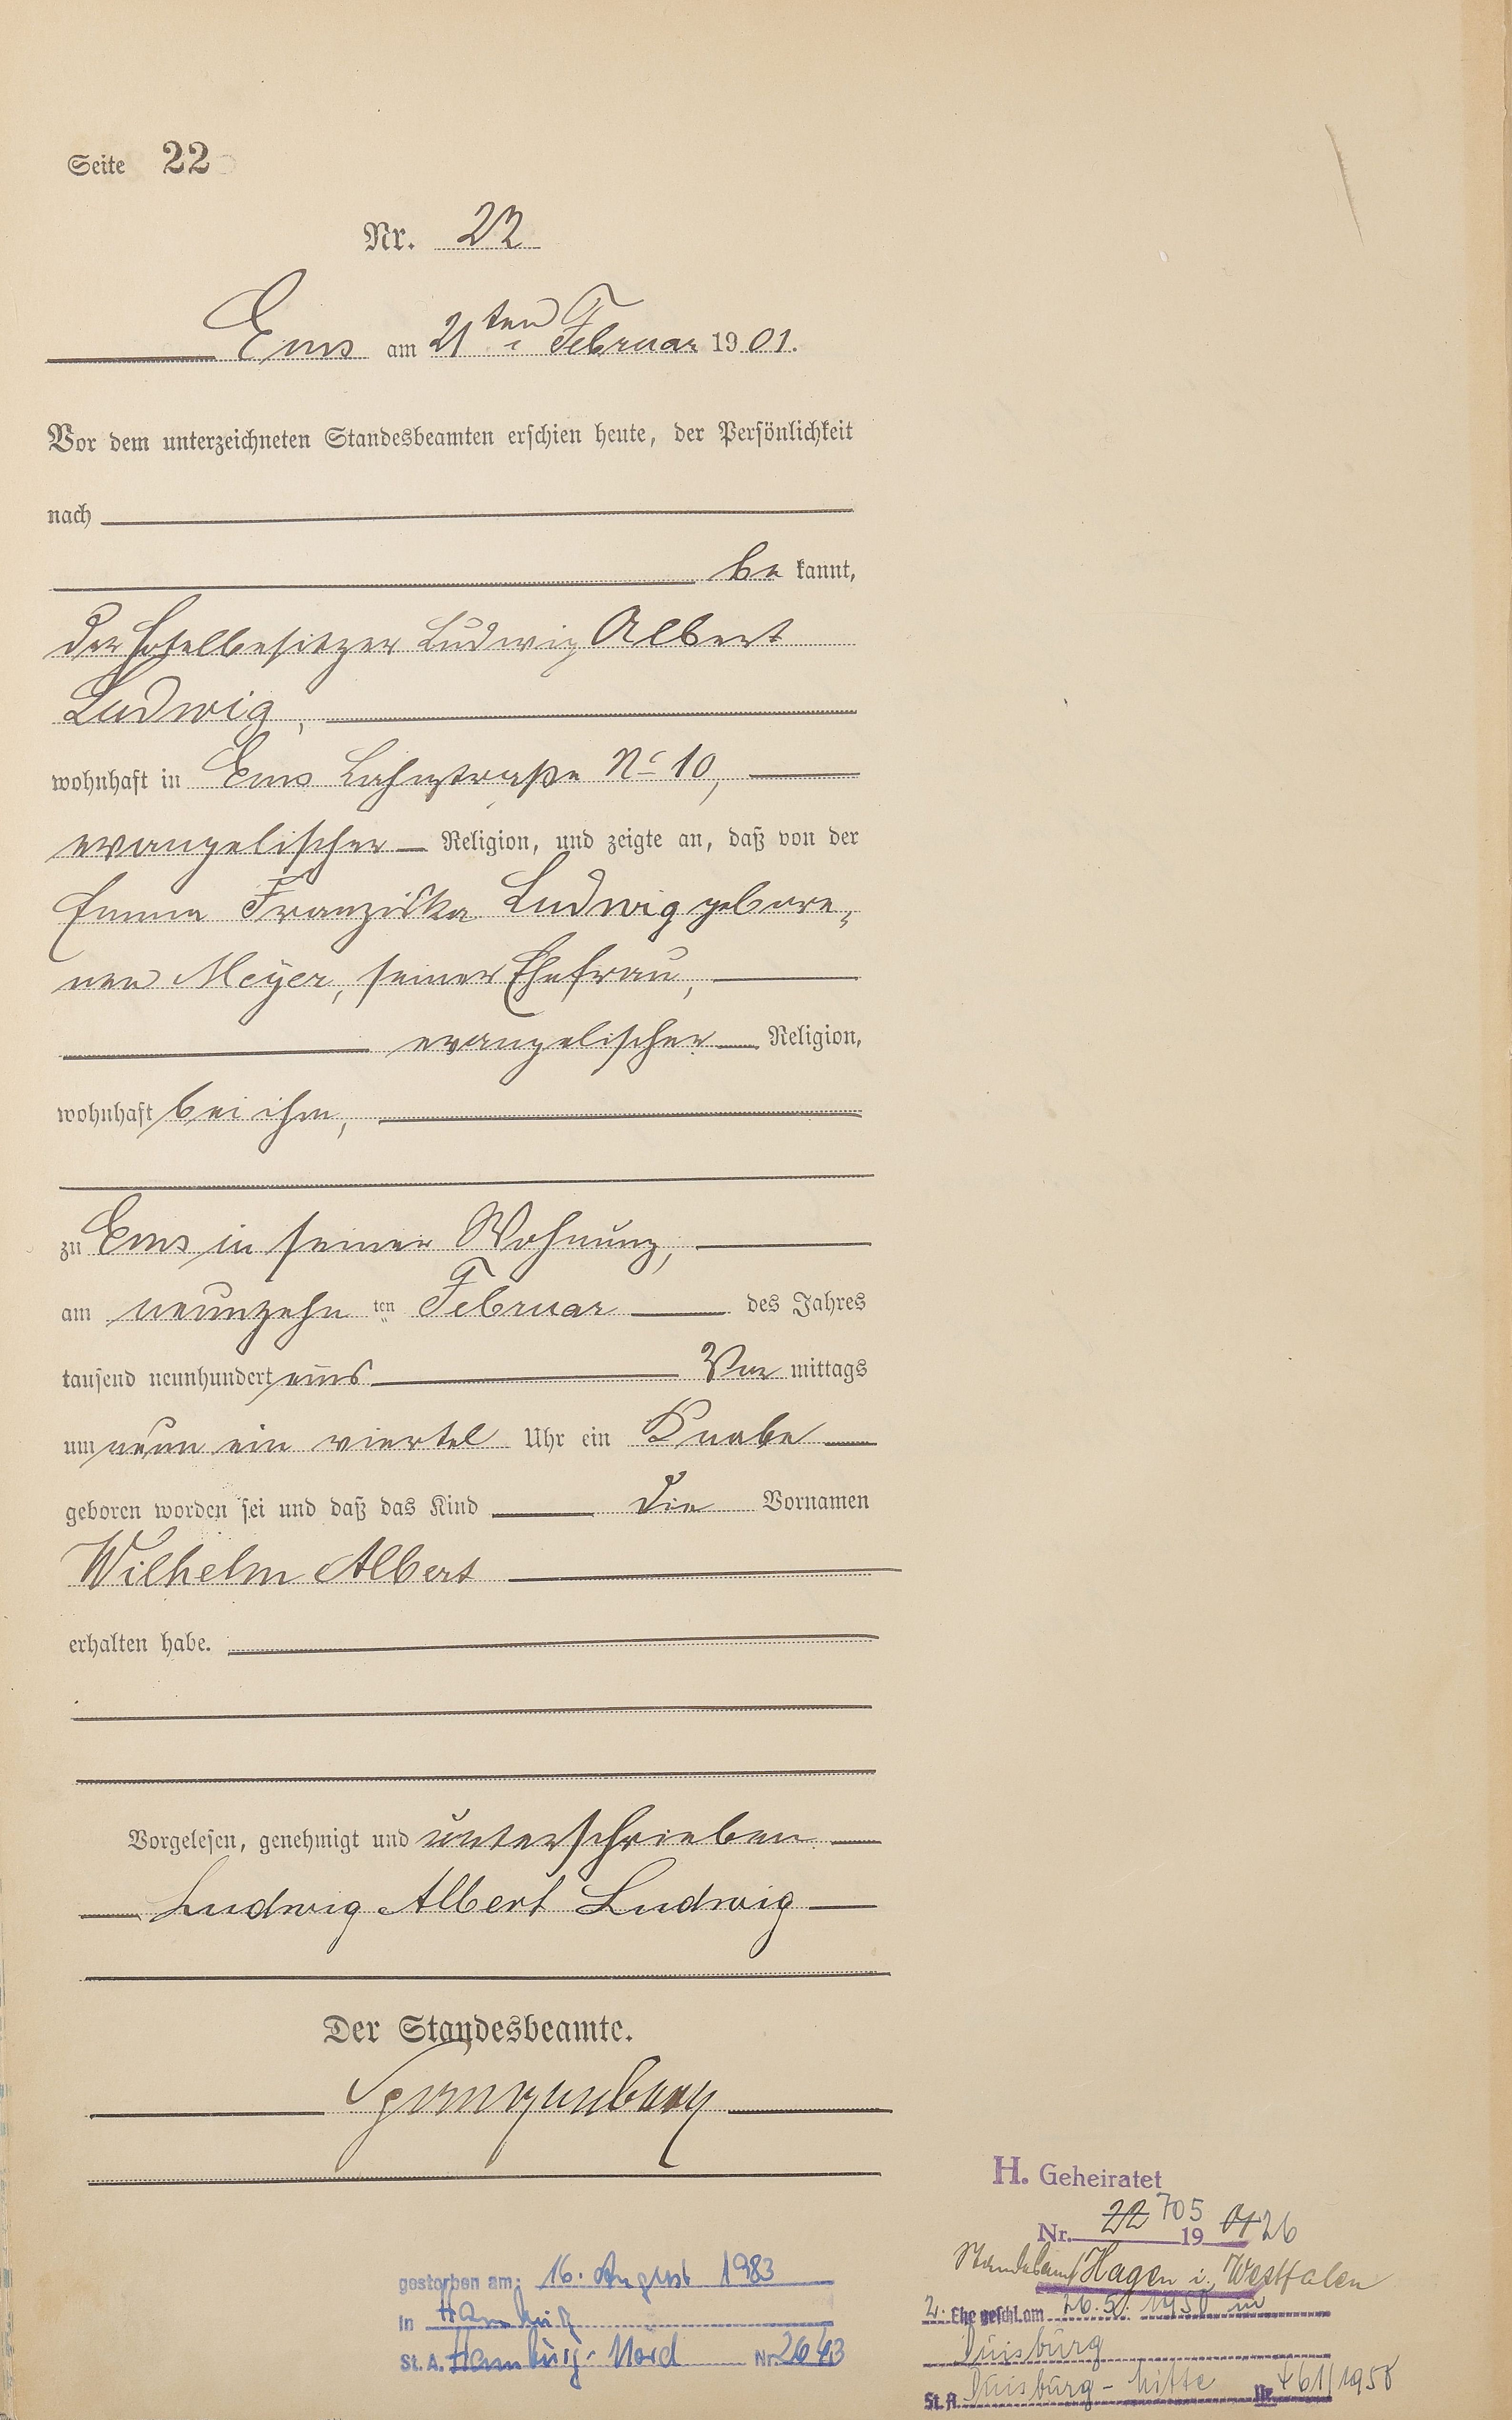 Seite 22
Nr. 22
Ems am 21ten Februar 1901.
Vor dem unterzeichneten Standesbeamten erschien heute, der Persönlichkeit
nach
be kannt,
der Hotelbesitzer Ludwig Albert
Ludwig,
wohnhaft in Ems Lahnstraße No 10,
evangelischer Religion, und zeigte an, daß von der
Emma Franziska Ludwig gebore-
nen Meyer, seiner Ehefrau,
evangelischer Religion,
wohnhaft bei ihm,
zu Ems in seiner Wohnung,
am neunzehn ten Februar des Jahres
tausend neunhundert eins Vor mittags
um neun ein viertel Uhr ein Knabe
geboren worden sei und daß das Kind die Vornamen
Wilhelm Albert
erhalten habe.
Vorgelesen, genehmigt und unterschrieben
Ludwig Albert Ludwig
Der Standesbeamte.
Spangenberg
H. Geheiratet
Nr. 22 705 19 01 26
Standesamt Hagen i. Westfalen
2. Ehe geschl. am 26.5. 1950 in
Duisburg
St. A. Duisburg-Mitte Nr. 461/1950
gestorben am: 16. August 1983
in Hamburg
St. A. Hamburg-Nord Nr.